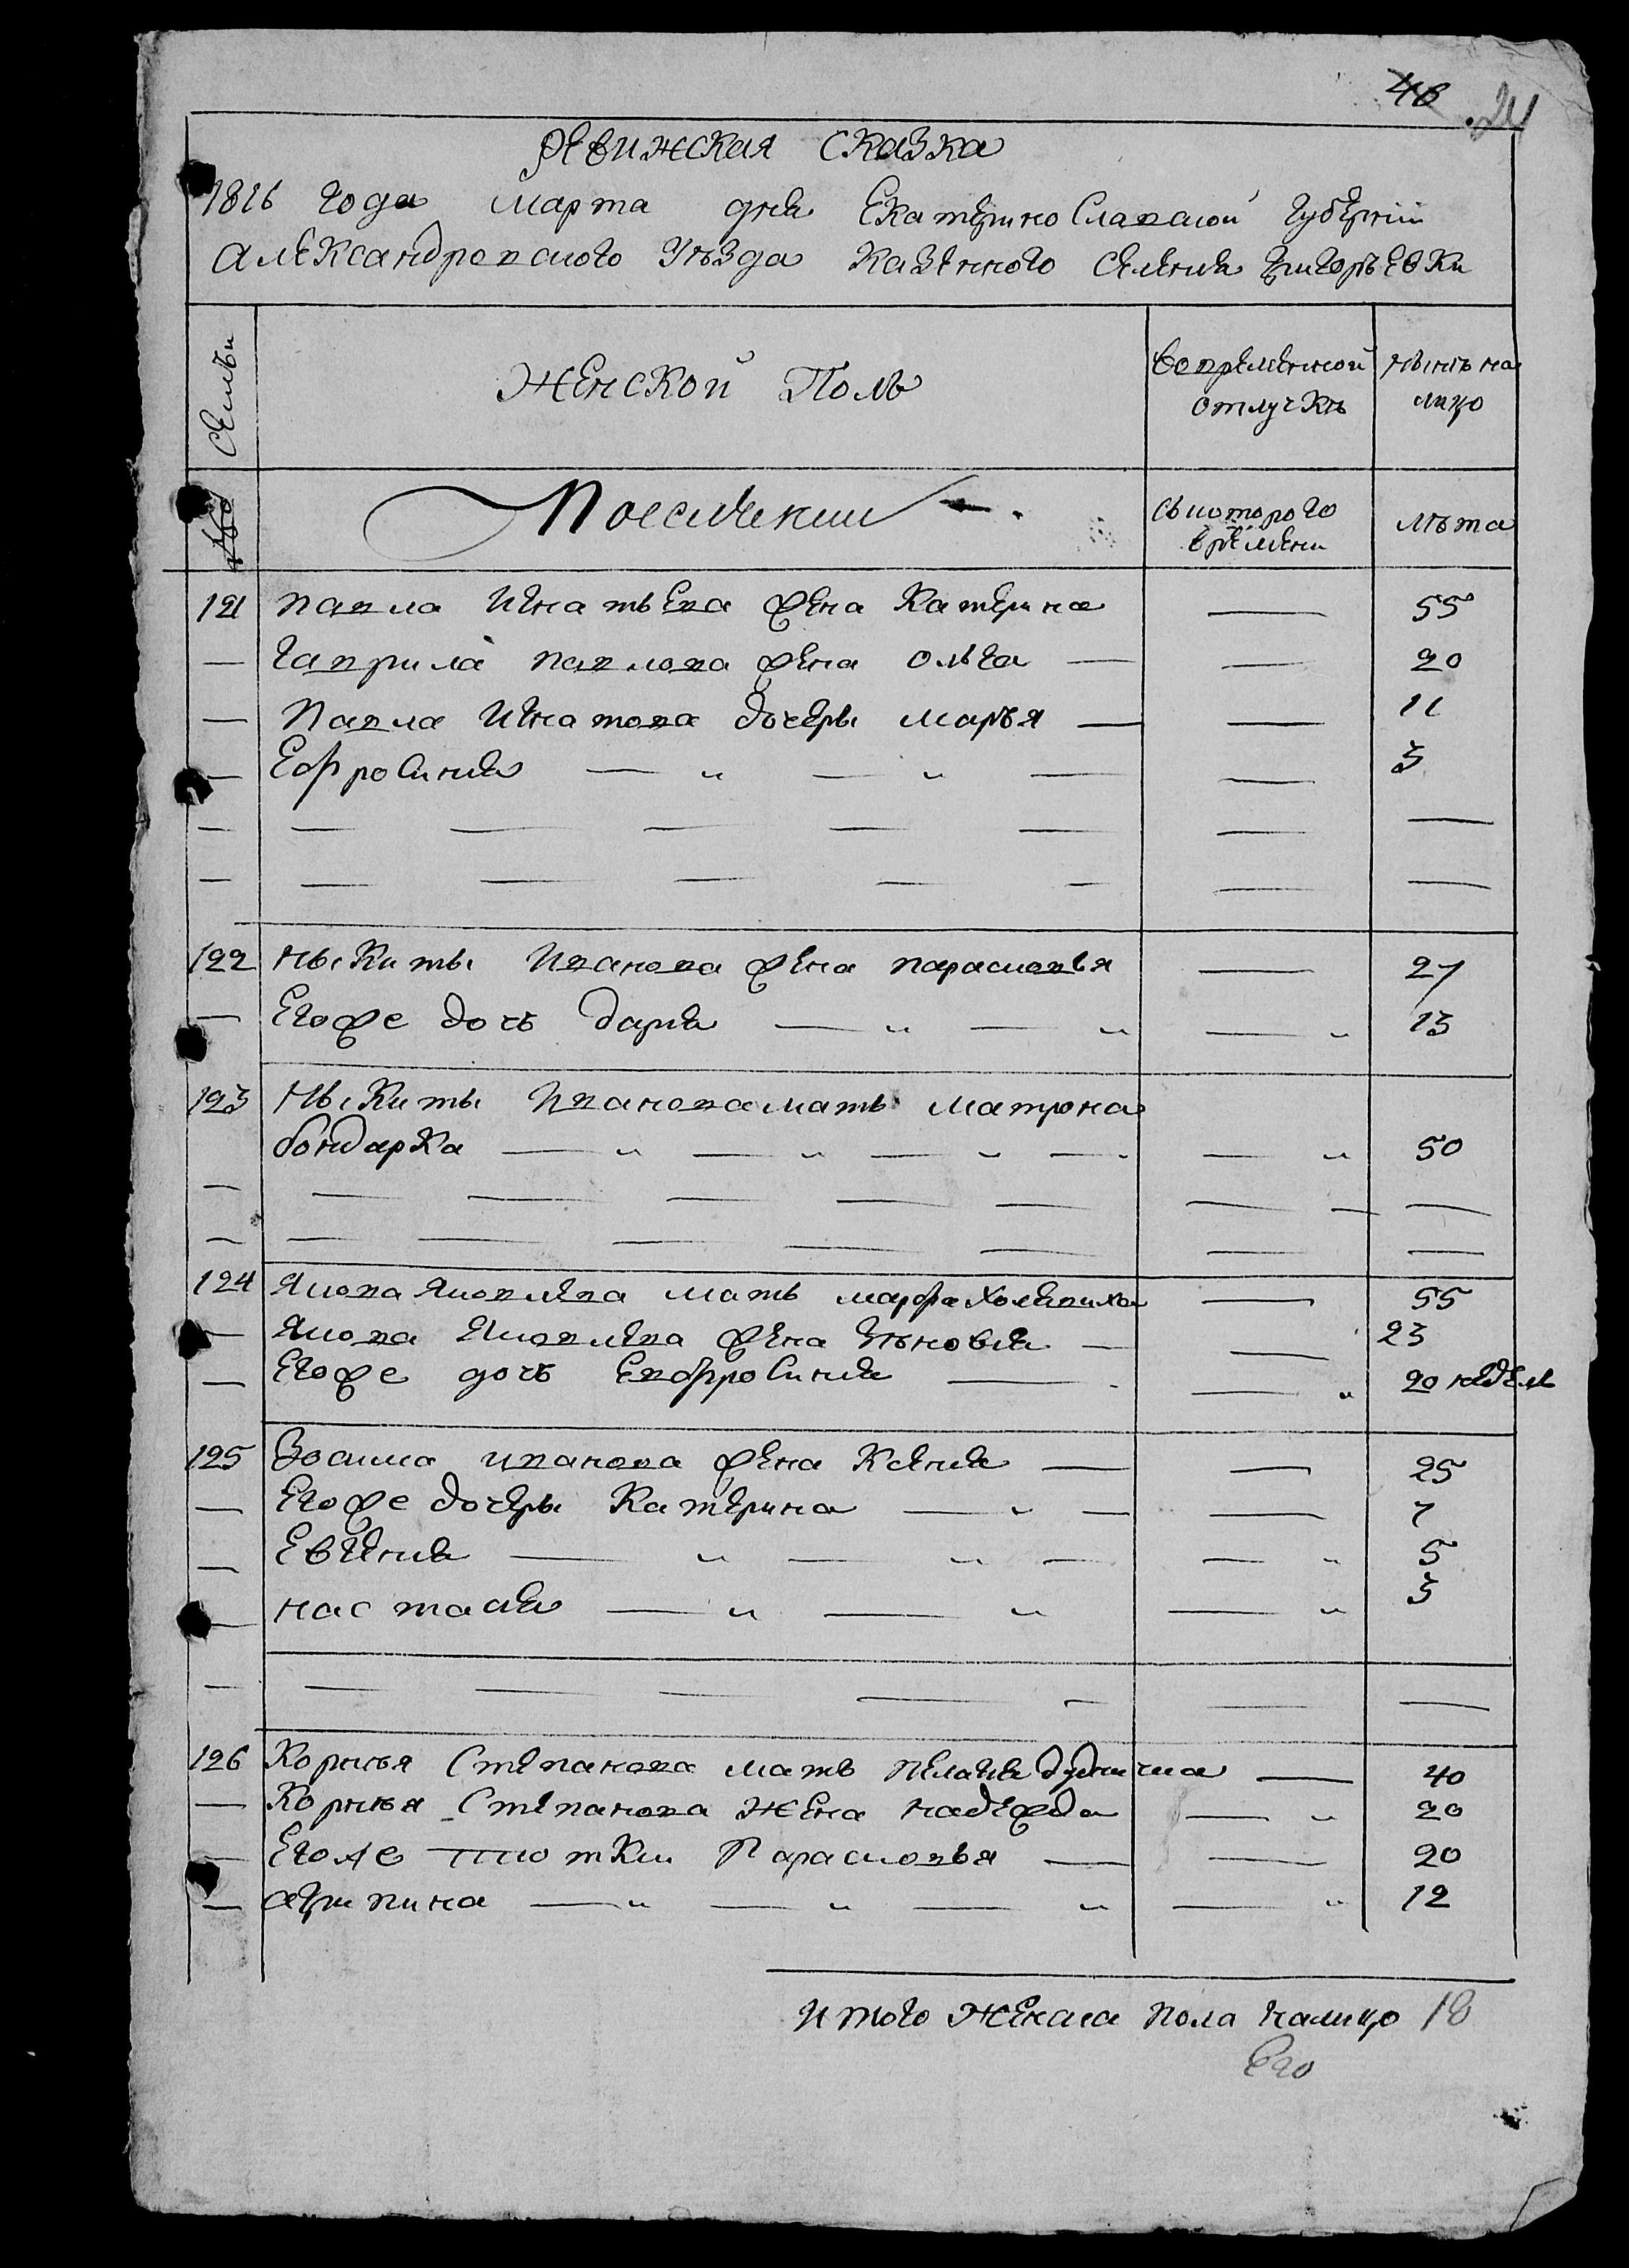 46 24
Ревижская сказка
1816 года марта дня Екатерино Славской губернии
Александровского уезда казенного селения Григорьевки
№ Семьи
Женской Полъ
вовременной отлучкѣ
нынѣ на лицо
сыкоторого времени
лѣта
121 павла Игнатьева жена Катерина — 55
— гаврила павлова жена олга — — 20
— Павла Игнатова дочеры маръя — — 11
— Ефросиния — " — " — — 3
122 ныкиты Иванова жена парасковья — 27
— Егоже дочъ дария — " — " — " 13
123 Ныкиты Иванова мать матрона
бондарка — " — " — " — — " 50
124 Якова Яковлева мать марфа — 55
— Якова Яковлева жена Зѣновия — — 23
— Егоже дочъ Евфросиния — — " 20 недель
125 Зосима иванова жена Ксения — — 25
— Егоже дочеры Катерина — " — — 7
— Евгения — " — " — — " 5
— настасия — " — " — " 3
126 Корнѣя Степанова мать пелагия — 40
— Корнѣя Степанова жена надежда — " 20
— Егоже тютки Парасковья — — 20
— агрипина — " — " — " — " 12
Итого женска пола налицо 18
Его